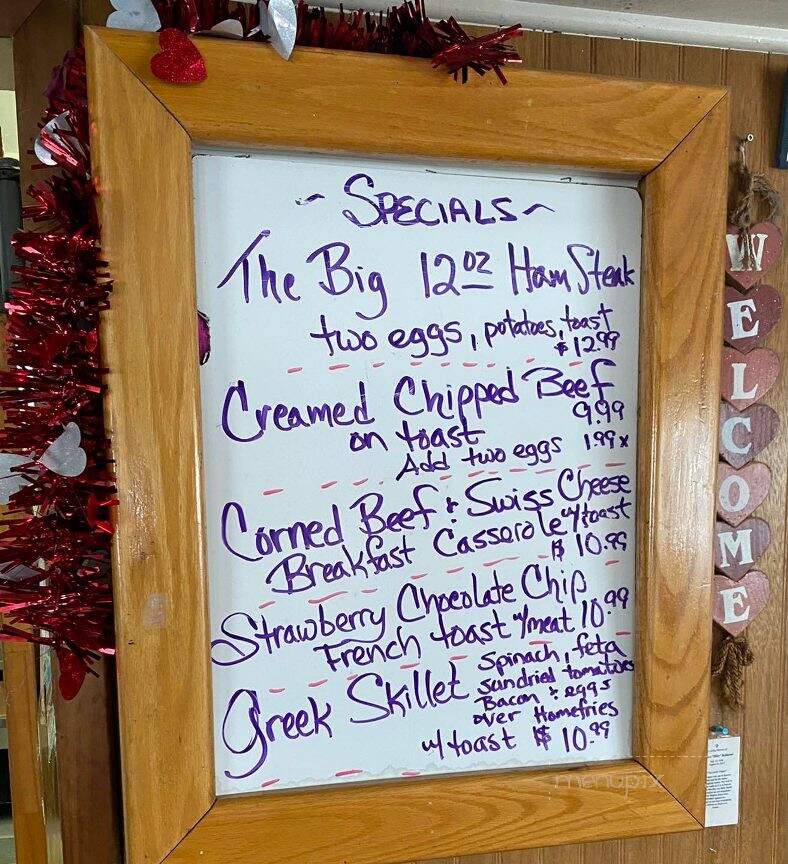 ~ SPECIALS ~
The Big 12oz Ham Steak
two eggs, potatoes, toast
$12.99
Creamed Chipped Beef
9.99
on toast
Add two eggs 1.99 x
Corned Beef & Swiss Cheese
Breakfast Casserole w/toast
$10.99
Strawberry Chocolate Chip
French toast w/meat 10.99
Greek Skillet
Spinach, feta
sundried tomatoes
Bacon & eggs
over Homefries
w/ toast $10.99
WELCOME
menupix